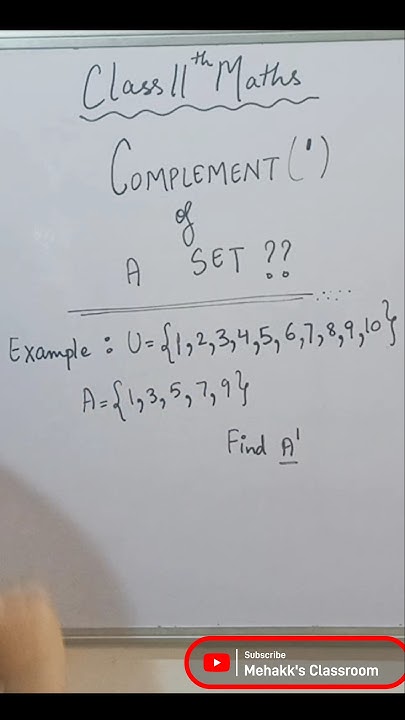 Class 11th Maths
COMPLEMENT (')
of
A SET ??
Example : U = {1,2,3,4,5,6,7,8,9,10}
A = {1,3,5,7,9}
Find A'
Subscribe
Mehakk's Classroom